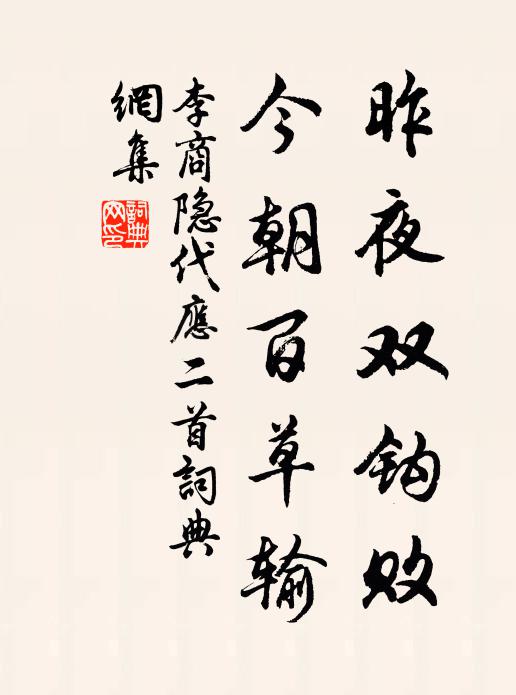 昨夜双钩败
今朝百草输
李商隐代應二首詞典
網集
詞典
网印